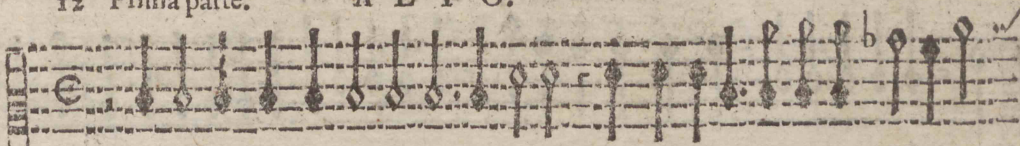 12 Prima parte. A L T O.